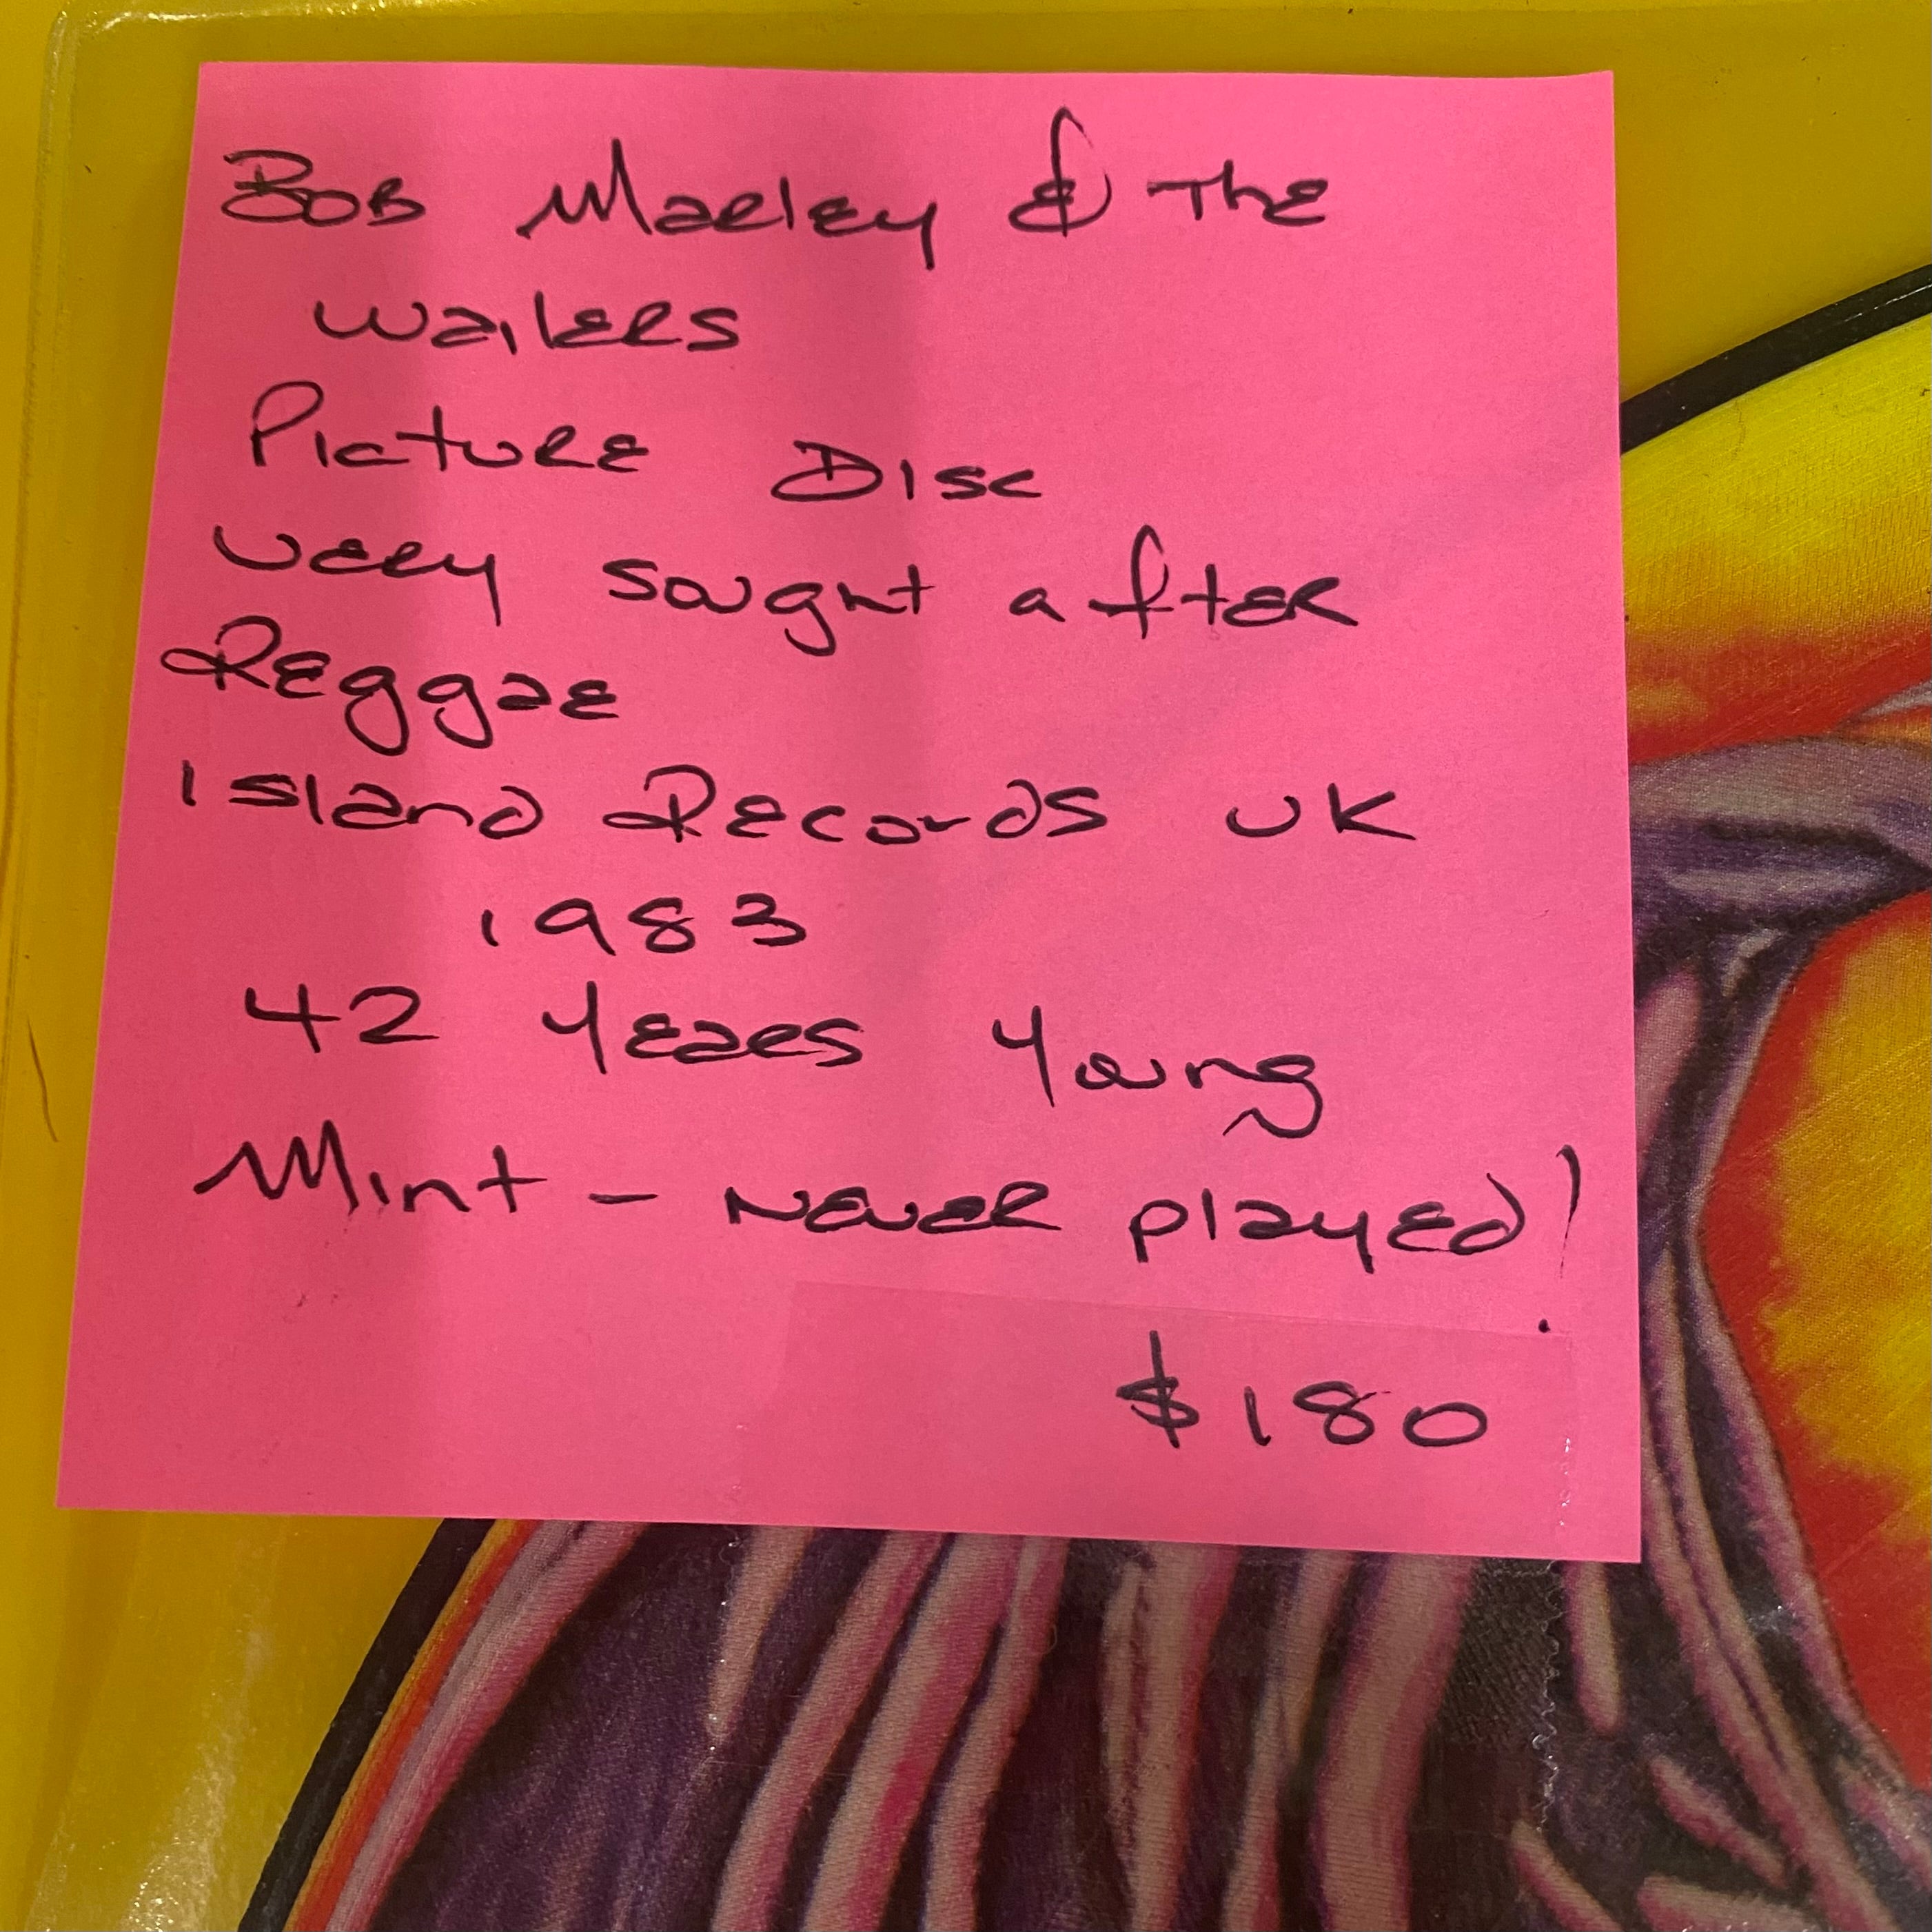 Bob Marley & The
Wailers
Picture Disc
Very sought after
Reggae
Island Records UK
1983
42 Years Young
Mint - Never played!
$180